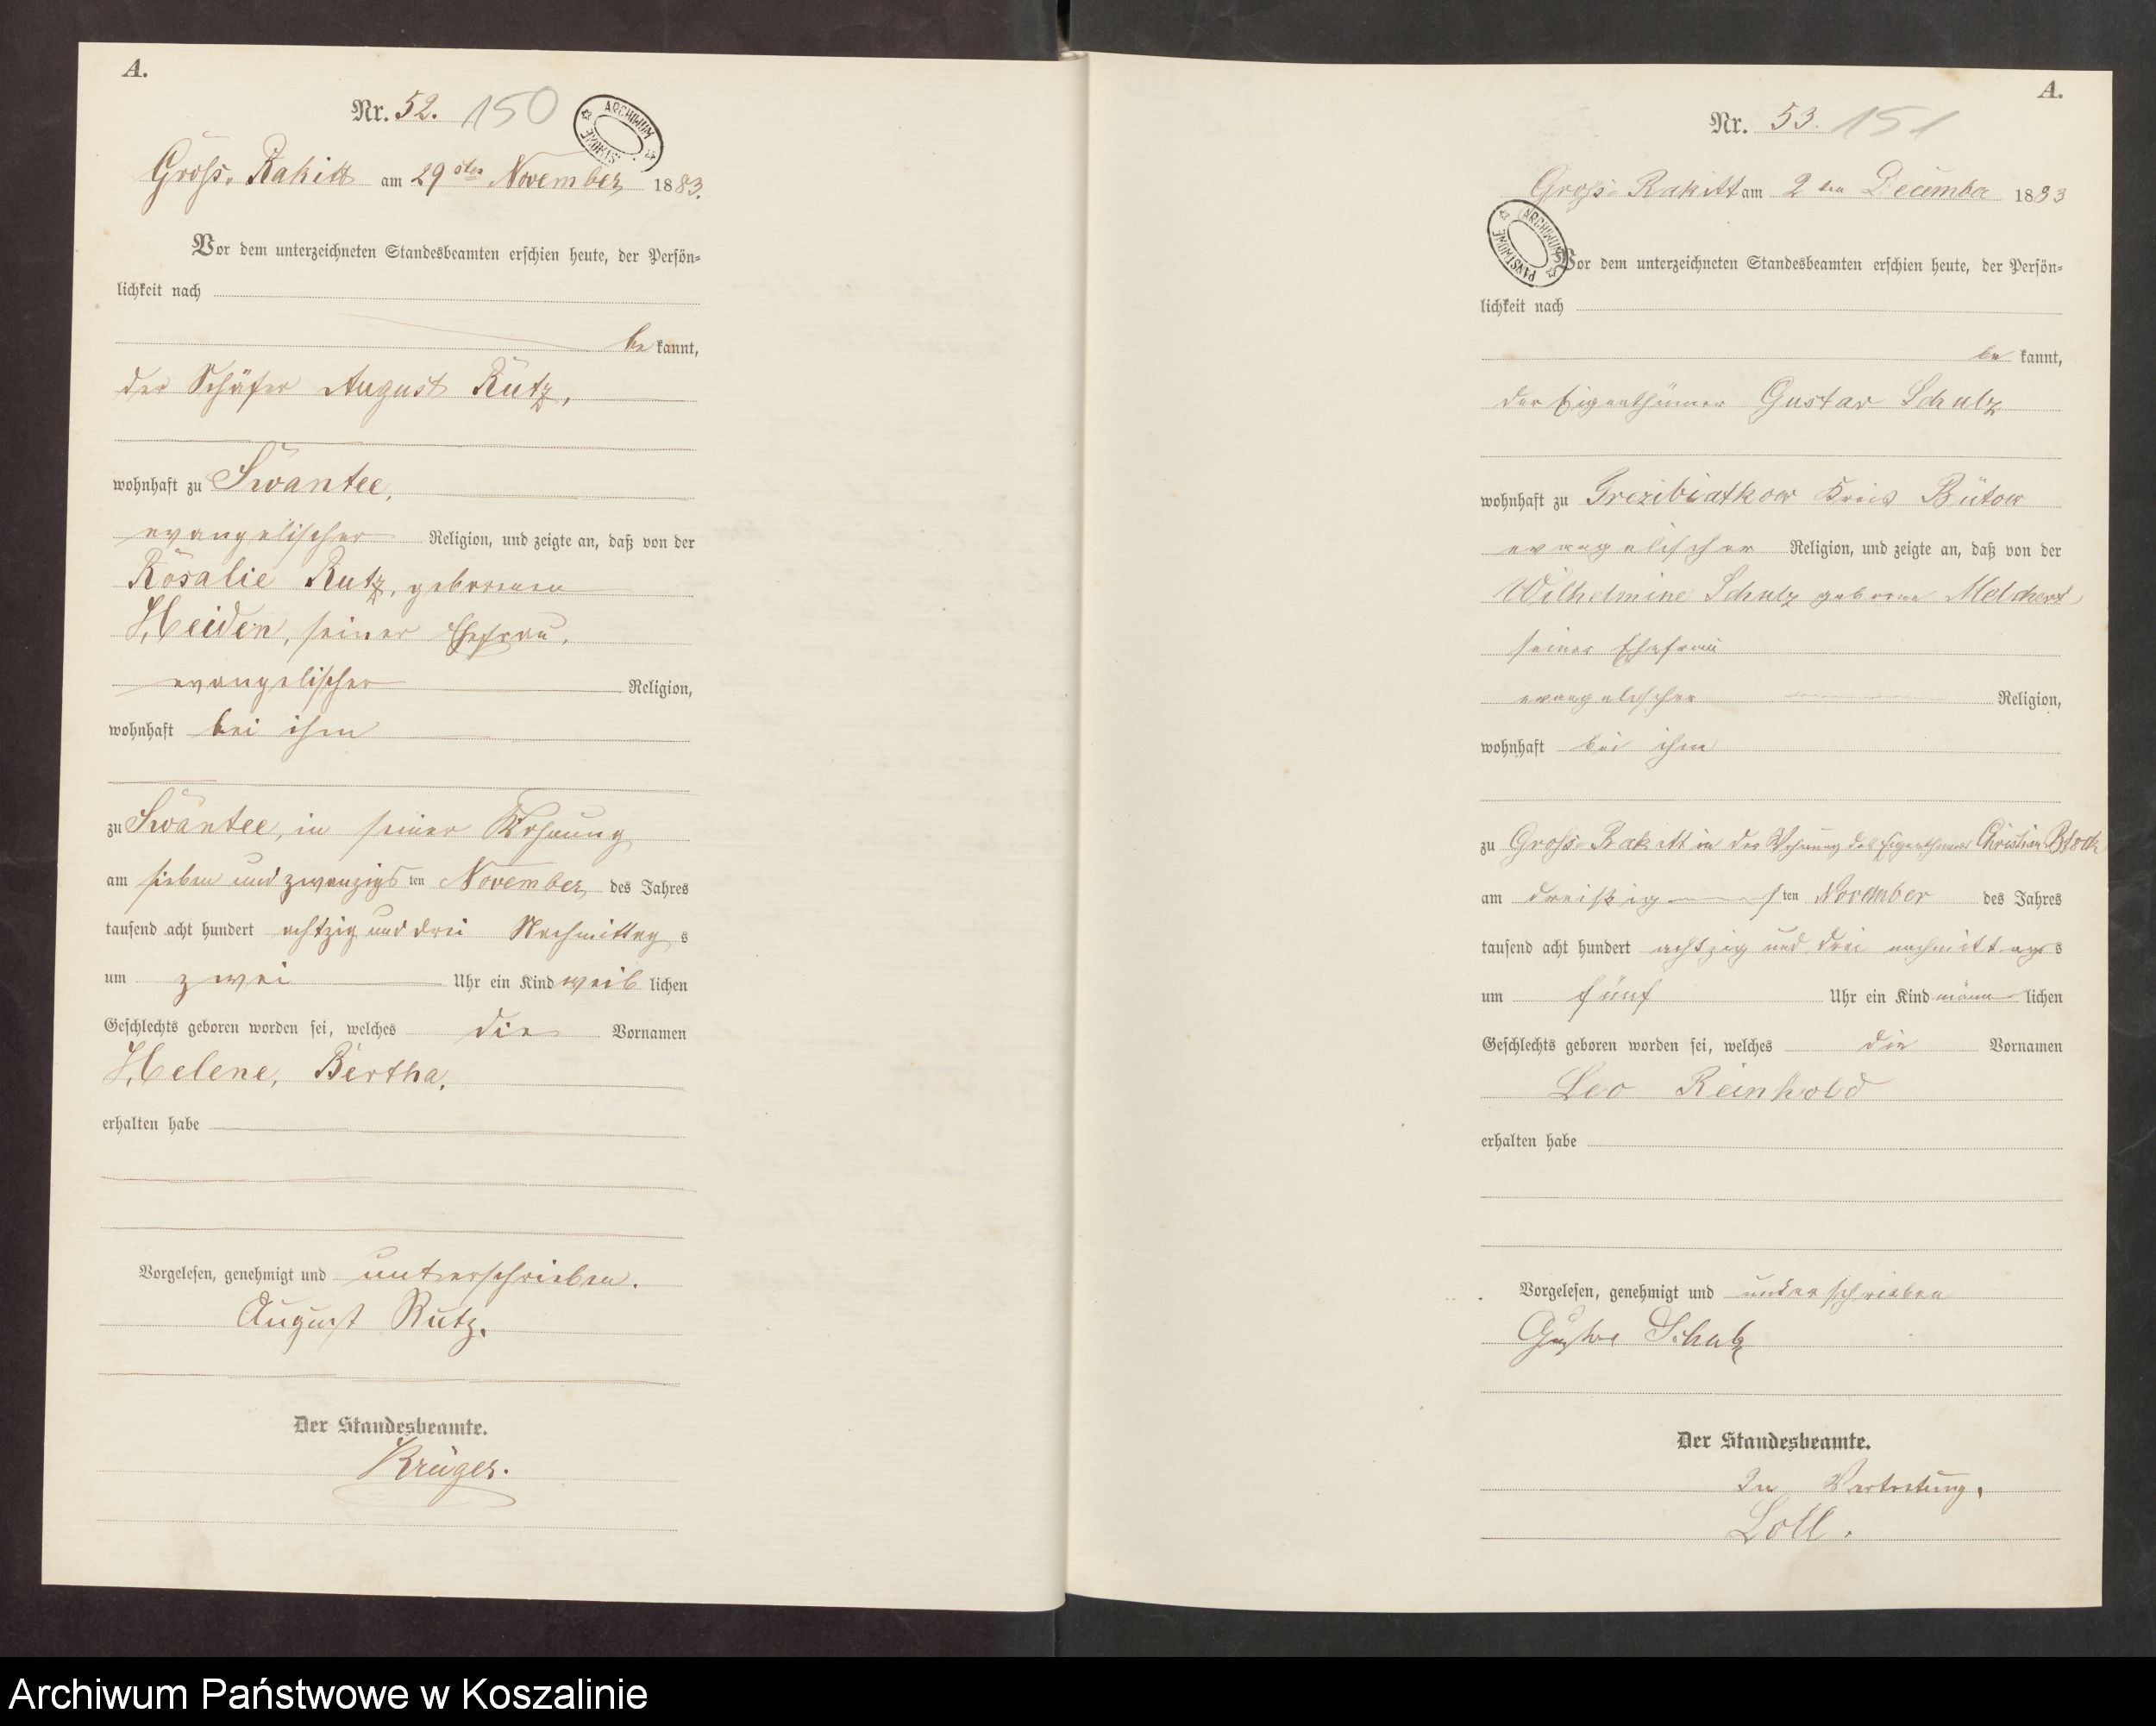 A.
Nr. 52. 150
ARCHIWUM
Groß-Rakitt am 29sten November 1883.
Vor dem unterzeichneten Standesbeamten erschien heute, der Persön-
lichkeit nach
be kannt,
der Schäfer August Rutz,
wohnhaft zu Swantee,
evangelischer Religion, und zeigte an, daß von der
Rosalie Rutz, geborenen
Heiden, seiner Ehefrau,
evangelischer Religion,
wohnhaft bei ihm
zu Swantee, in seiner Wohnung
am sieben und zwanzigsten November des Jahres
tausend acht hundert achtzig und drei Nachmittags
um zwei Uhr ein Kind weiblichen
Geschlechts geboren worden sei, welches die Vornamen
Helene, Bertha.
erhalten habe
Vorgelesen, genehmigt und unterschrieben.
August Rutz.
Der Standesbeamte.
Krüger.
A.
Nr. 53. 151
Groß-Rakitt am 2ten December 1883
ARCHIWUM PAŃSTWOWE
Vor dem unterzeichneten Standesbeamten erschien heute, der Persön-
lichkeit nach
be kannt,
der Eigenthümer Gustav Schulz
wohnhaft zu Grezibiatkow Kreis Bütow
evangelischer Religion, und zeigte an, daß von der
Wilhelmine Schulz geborene Melchert
seiner Ehefrau
evangelischer Religion,
wohnhaft bei ihm
zu Groß-Rakitt in der Wohnung des Eigenthümers Christian
am dreißigsten November des Jahres
tausend acht hundert achtzig und drei nachmittags
um fünf Uhr ein Kind männlichen
Geschlechts geboren worden sei, welches die Vornamen
Leo Reinhold
erhalten habe
Vorgelesen, genehmigt und unterschrieben
Gustav Schulz
Der Standesbeamte.
In Vertretung.
Loll.
Archiwum Państwowe w Koszalinie